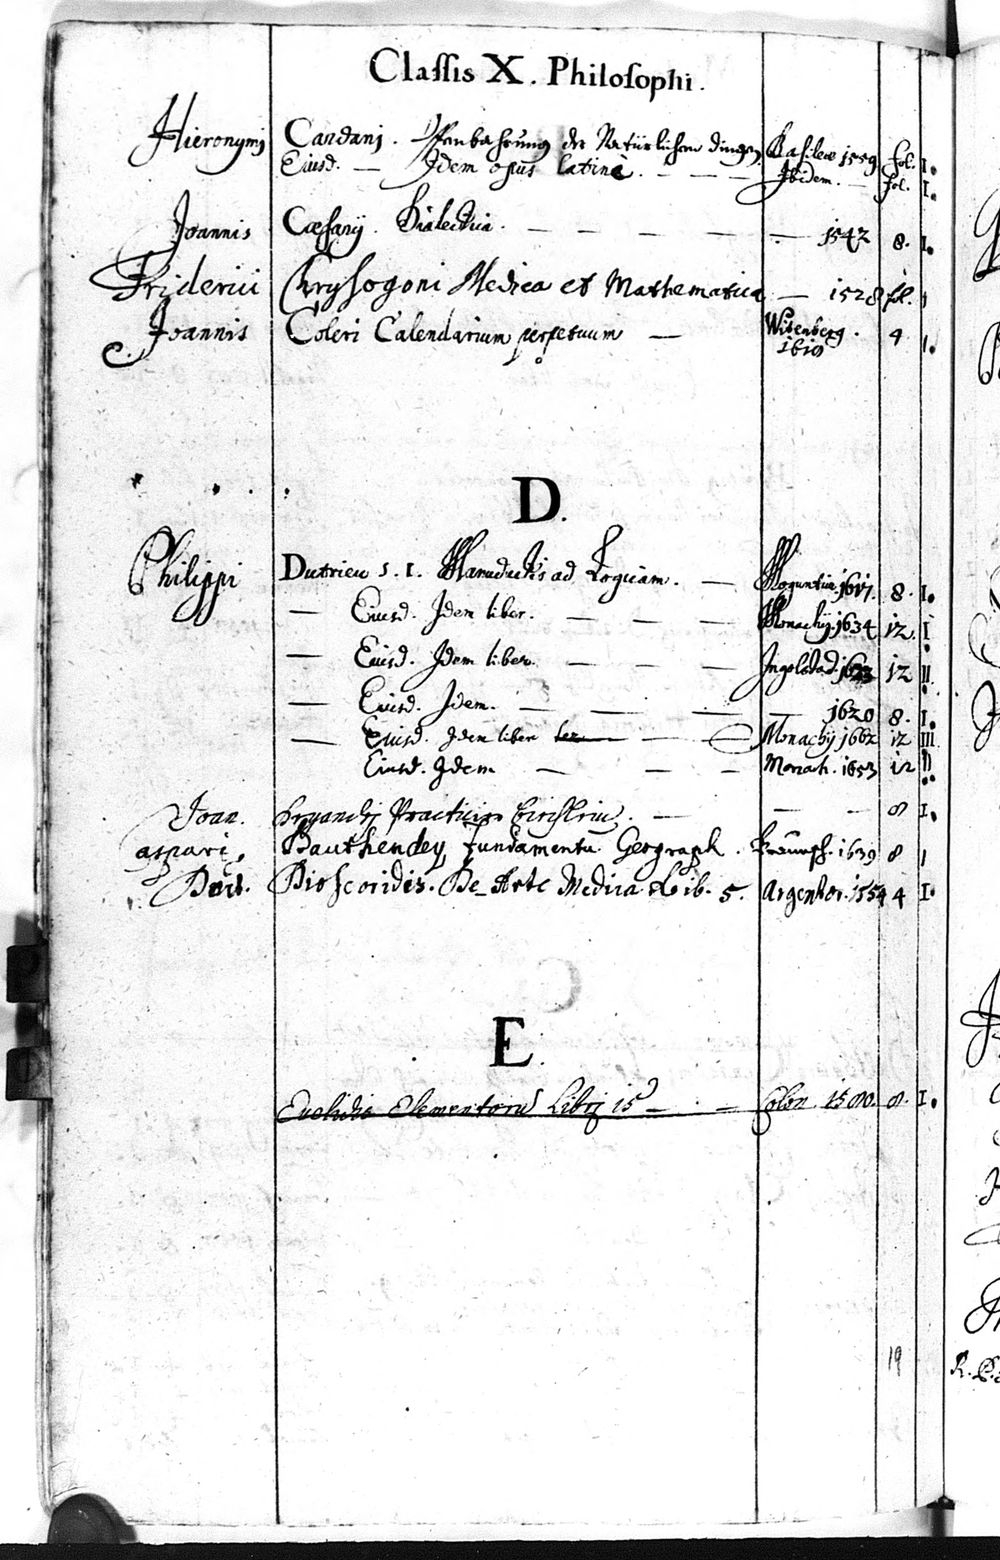 Classis X. Philosophi.
Hieronymi Cardani. Offenbahrung der Natürlichen dingen Basileae 1559 fol. I.
Eiusd. — Idem opus latine. — — — Ibidem. — fol. I.
Joannis Caesarij. Dialectica. — — — — — 1542 8. I.
Friderici Chrysogoni Medica et Mathematica — 1528 fol. 1
Joannis Coleri Calendarium perpetuum — Witenberg. 4 I.
C. 1619
D.
Philippi Dutrieu S. I. Manuductis ad Logicam. — Moguntiae. 1617. 8. I.
— Eiusd. Idem liber. — — — Monachij. 1634 12. I.
— Eiusd. Idem liber. — — — Ingolstad. 1623 12 II.
— Eiusd. Idem. — — — — 1620 8. I.
— Eiusd. Idem liber — — Monachij 1662 12 III
Eiusd. Idem — — — Monach. 1653 12 II
Joan. Dryandrj — — — 8 I.
aspari. Dauthendey fundamenta Geograph. 1639 8 1
Dioscoridis. De Arte Medica Lib. 5. Argentor. 1554 4 I.
E.
Euclidis Elementorū Librj 15 — — Colon 1580. 8. I.
19
R. P.